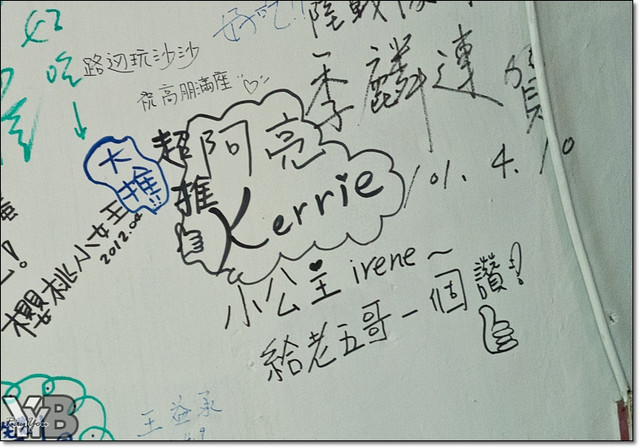 好吃!!
好
吃
路過玩沙沙
祝高朋滿座
陸戰隊
李麟連
101.4.10
大推!!
超推
阿亮
Kerrie
櫻桃小女王
2012.04
小公主 irene~
給老五哥一個讚!
王益承
YYB